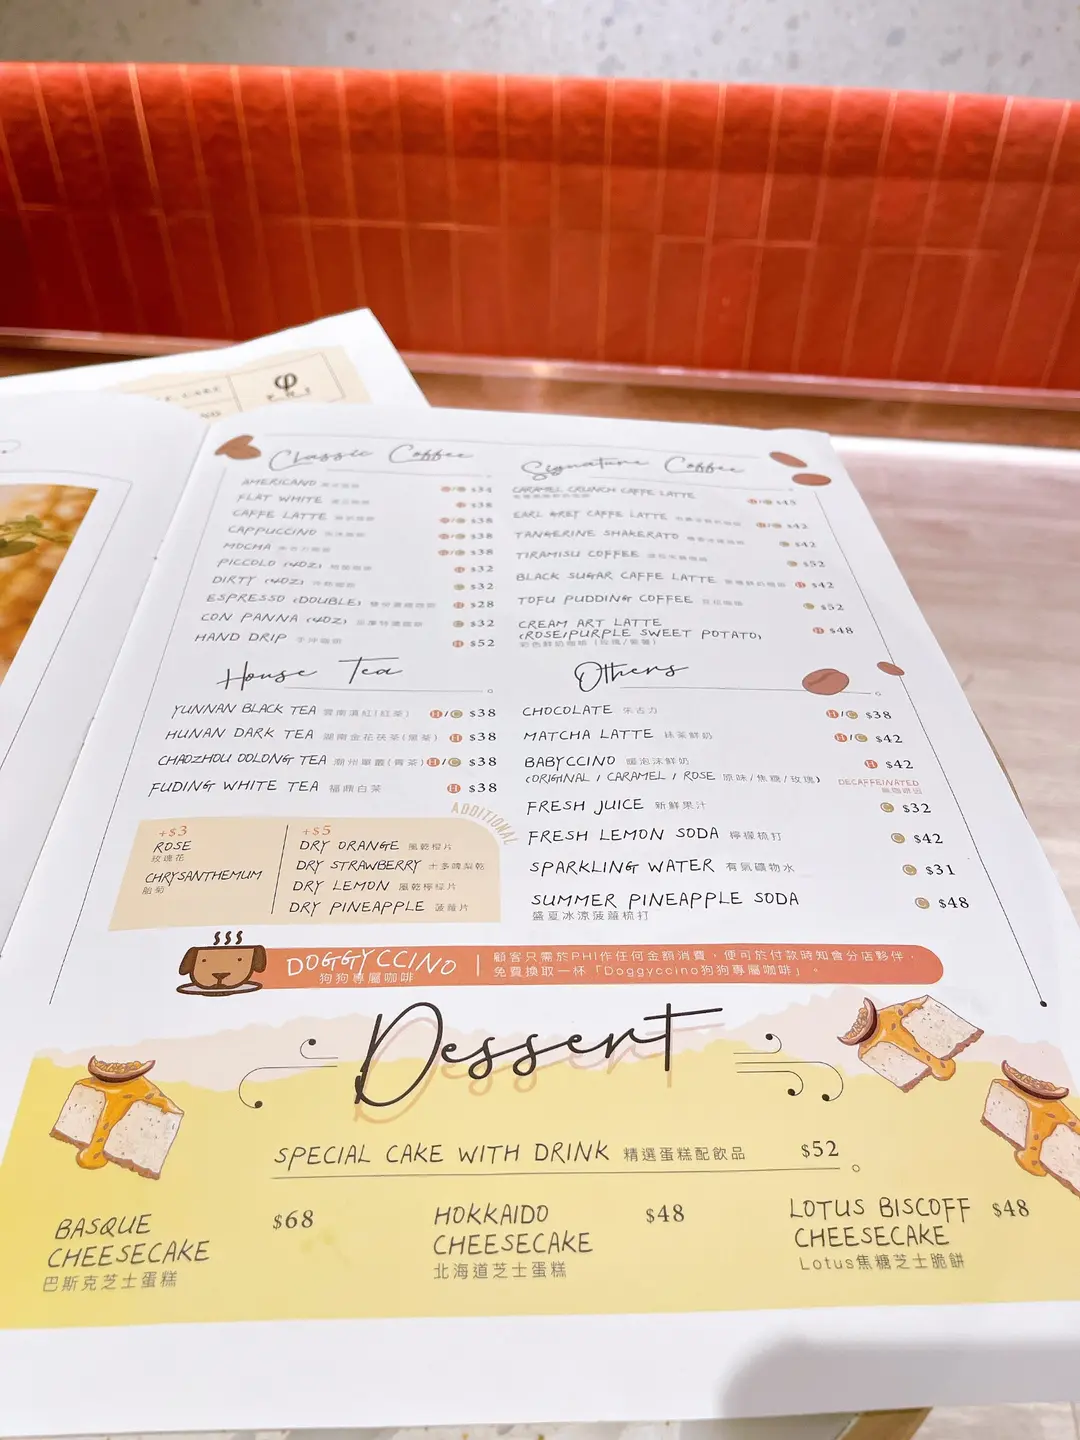 φ
Classic Coffee
AMERICANO $34
FLAT WHITE $38
CAFFE LATTE $38
CAPPUCCINO $38
MOCHA $38
PICCOLO (4OZ) $32
DIRTY (4OZ) $32
ESPRESSO (DOUBLE) $28
CON PANNA (4OZ) $32
HAND DRIP 手沖咖啡 H $52
Signature Coffee
CARAMEL CRUNCH CAFFE LATTE $45
EARL GREY CAFFE LATTE $42
TANGERINE SHAKERATO $42
TIRAMISU COFFEE $52
BLACK SUGAR CAFFE LATTE H $42
TOFU PUDDING COFFEE $52
CREAM ART LATTE
(ROSE/PURPLE SWEET POTATO) H $48
House Tea
YUNNAN BLACK TEA 雲南滇紅(紅茶) H/C $38
HUNAN DARK TEA 湖南金花茯茶(黑茶) H $38
CHAOZHOU OOLONG TEA 潮州單叢(青茶) H/C $38
FUDING WHITE TEA 福鼎白茶 H $38
ADDITIONAL
+$3
ROSE
玫瑰花
CHRYSANTHEMUM
胎菊
+$5
DRY ORANGE 風乾橙片
DRY STRAWBERRY 士多啤梨乾
DRY LEMON 風乾檸檬片
DRY PINEAPPLE 菠蘿片
Others
CHOCOLATE 朱古力 H/C $38
MATCHA LATTE 抹茶鮮奶 H/C $42
BABYCCINO 暖泡沫鮮奶 H $42
(ORIGINAL / CARAMEL / ROSE 原味/焦糖/玫瑰) DECAFFEINATED
無咖啡因
FRESH JUICE 新鮮果汁 C $32
FRESH LEMON SODA 檸檬梳打 C $42
SPARKLING WATER 有氣礦物水 C $31
SUMMER PINEAPPLE SODA C $48
盛夏冰涼菠蘿梳打
DOGGYCCINO
狗狗專屬咖啡
顧客只需於PHI作任何金額消費，便可於付款時知會分店夥伴，
免費換取一杯「Doggyccino狗狗專屬咖啡」。
Dessert
SPECIAL CAKE WITH DRINK 精選蛋糕配飲品 $52
BASQUE $68
CHEESECAKE
巴斯克芝士蛋糕
HOKKAIDO $48
CHEESECAKE
北海道芝士蛋糕
LOTUS BISCOFF $48
CHEESECAKE
Lotus焦糖芝士脆餅